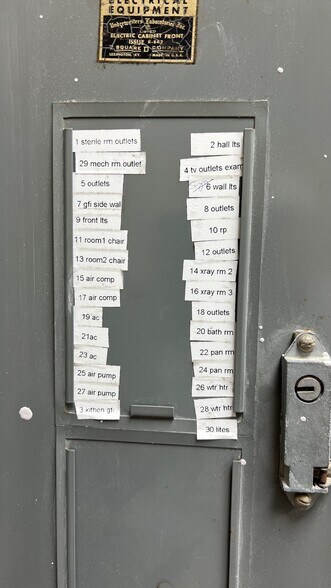 ELECTRICAL
EQUIPMENT
Underwriters' Laboratories Inc.
ELECTRIC CABINET FRONT
ISSUE
SQUARE D COMPANY
LEXINGTON, KY. MADE IN U.S.A.
1 sterile rm outlets
29 mech rm outlet
5 outlets
7 gfi side wall
9 front lts
11 room1 chair
13 room2 chair
15 air comp
17 air comp
19 ac
21ac
23 ac
25 air pump
27 air pump
3 kithen gfi
2 hall lts
4 tv outlets exam
6 wall lts
8 outlets
10 rp
12 outlets
14 xray rm 2
16 xray rm 3
18 outlets
20 bath rm
22 pan rm
24 pan rm
26 wtr htr
28 wtr htr
30 lites